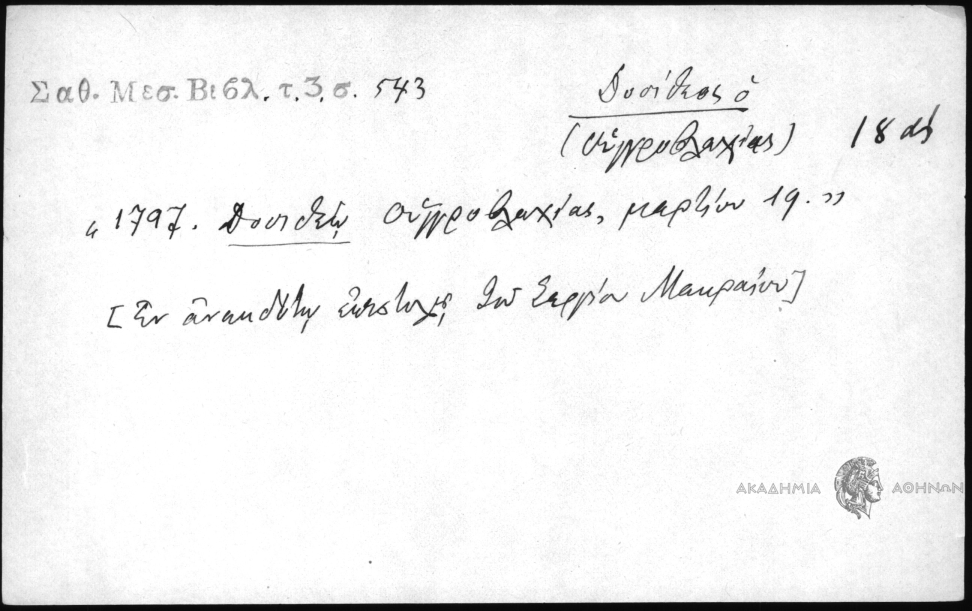 Σαθ. Μεσ. Βιβλ. τ. 3, σ. 543
Δοσίθεος ὁ
(Οὐγγροβλαχίας)
18 αἰ
« 1797. Δοσιθέῳ Οὐγγροβλαχίας, μαρτίου 19. »
[Ἐν ἀνεκδότῳ ἐπιστολῇ τοῦ Σεργίου Μακραίου]
ΑΚΑΔΗΜΙΑ ΑΘΗΝΩΝ